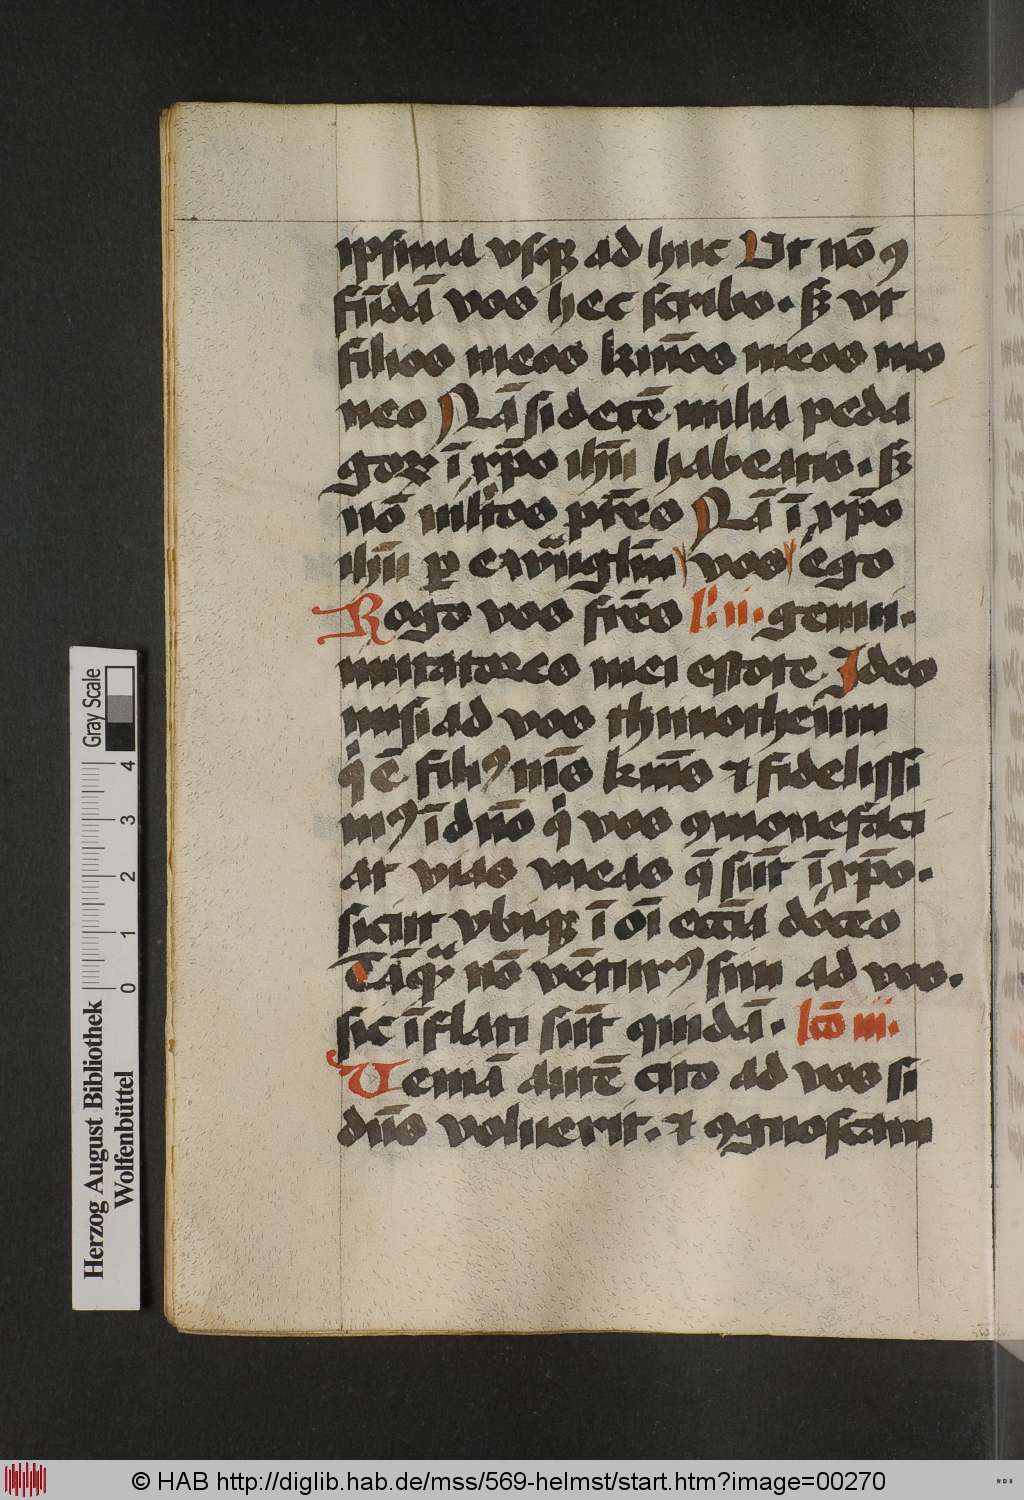 ipsima vsqꝫ ad huc Vt nō ꝯ
fūdā vos hec scribo · sꝫ vt
filios meos kīnos meos mo
neo Nā si decē milia peda
goꝝ ī xp̄o ih̄u habeatis · sꝫ
nō ml̄tos pr̄es Nā ī xp̄o
ih̄u ꝑ ewāgliū vos ego
Rogo vos fr̄es l̄· ii · genui ·
imitatores mei estote Ideo
misi ad vos thimotheum
qͥ ē filiꝰ mīs kīns ⁊ fidelissi
mꝰ ī dn̄o qͥ vos ꝯmonefaci
at vias meas q̄ sūt ī xp̄o ·
sicut vbiqꝫ ī oī ecc̄ia doceo
Tāqͣ nō vēturꝰ sim ad vos ·
sic īflati sūt quidā · lc̄o iii ·
Veniā autē cito ad vos si
dn̄s voluerit · ⁊ ꝯgnoscam
Gray Scale
4
3
2
1
0
Herzog August Bibliothek
Wolfenbüttel
© HAB http://diglib.hab.de/mss/569-helmst/start.htm?image=00270